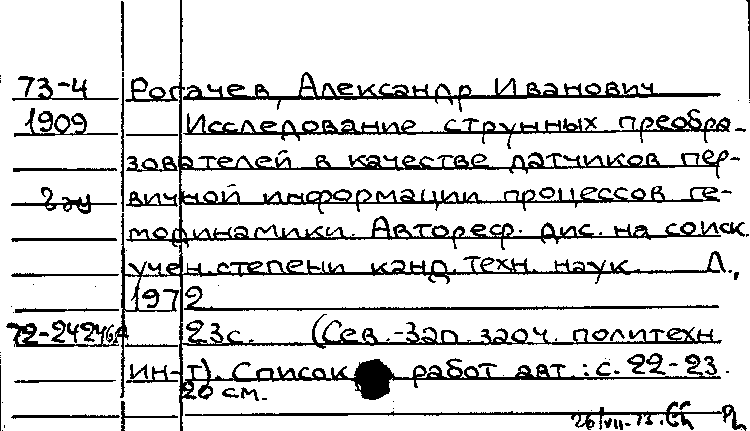 73-4 Рогачев, Александр Иванович
1909 Исследование струнных преобра-
зователей в качестве датчиков пер-
вичной информации процессов ге-
модинамики. Автореф. дис. на соиск.
учен. степени канд. техн. наук. Л.,
1972.
72-24246А 23с. (Сев.-Зап. заоч. политехн.
ин-т). Список работ авт.: с. 22-23.
20 см.
26/VII-73.